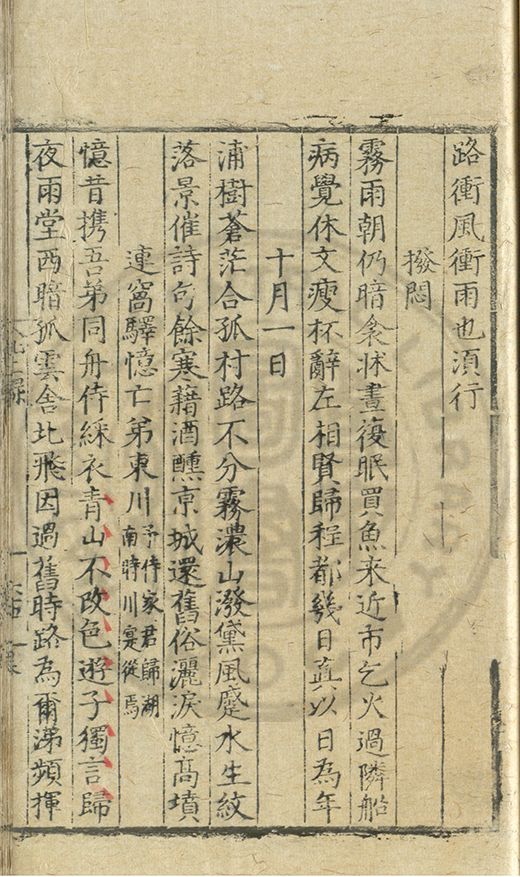 路衝風衝雨也湏行
撥悶
霧雨朝仍暗衾牀晝復眠買魚来近市乞火過隣船
病覺休文瘦杯辭左相賢歸程都幾日真以日為年
十月一日
浦樹蒼茫合孤村路不分霧濃山潑黛風蹙水生紋
落景催詩句餘寒藉酒醺亰城還舊俗灑淚憶髙墳
連窩驛憶亡弟東川
予侍家君歸湖
南時川寔從焉
憶昔携吾弟同舟侍綵衣青山不改色逰子獨言歸
夜雨堂西暗孤雲舍北飛因過舊時路為爾涕頻揮